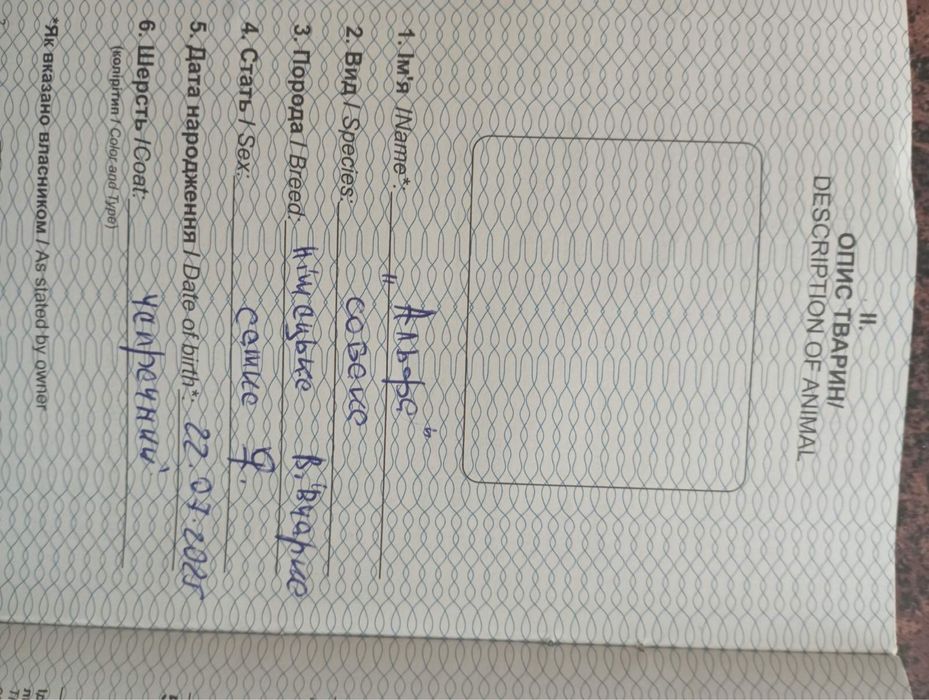 II.
ОПИС ТВАРИН/
DESCRIPTION OF ANIMAL
1. Ім'я /Name*: "Альфа"
2. Вид / Species: собака
3. Порода / Breed: Німецька Вівчарка
4. Стать / Sex: самка ♀.
5. Дата народження / Date of birth*: 22.07.2025
6. Шерсть /Coat: чапрачний
(колір і тип / Color and Type)
*Як вказано власником / As stated by owner